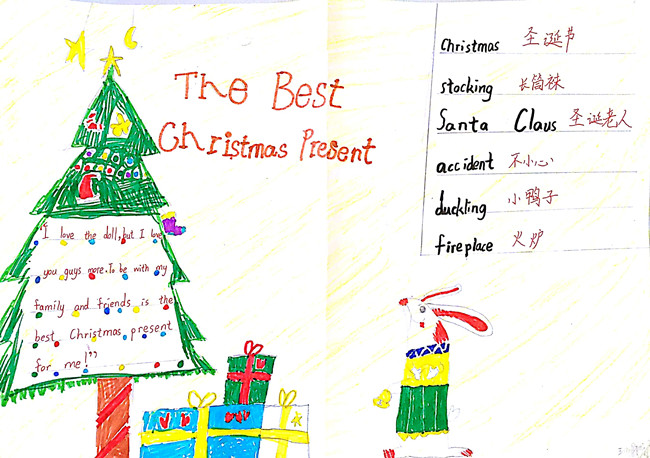 The Best
Christmas Present
"I love the doll, but I love
you guys more. To be with my
family and friends is the
best Christmas present
for me!"
Christmas 圣诞节
stocking 长筒袜
Santa Claus 圣诞老人
accident 不小心
duckling 小鸭子
fireplace 火炉